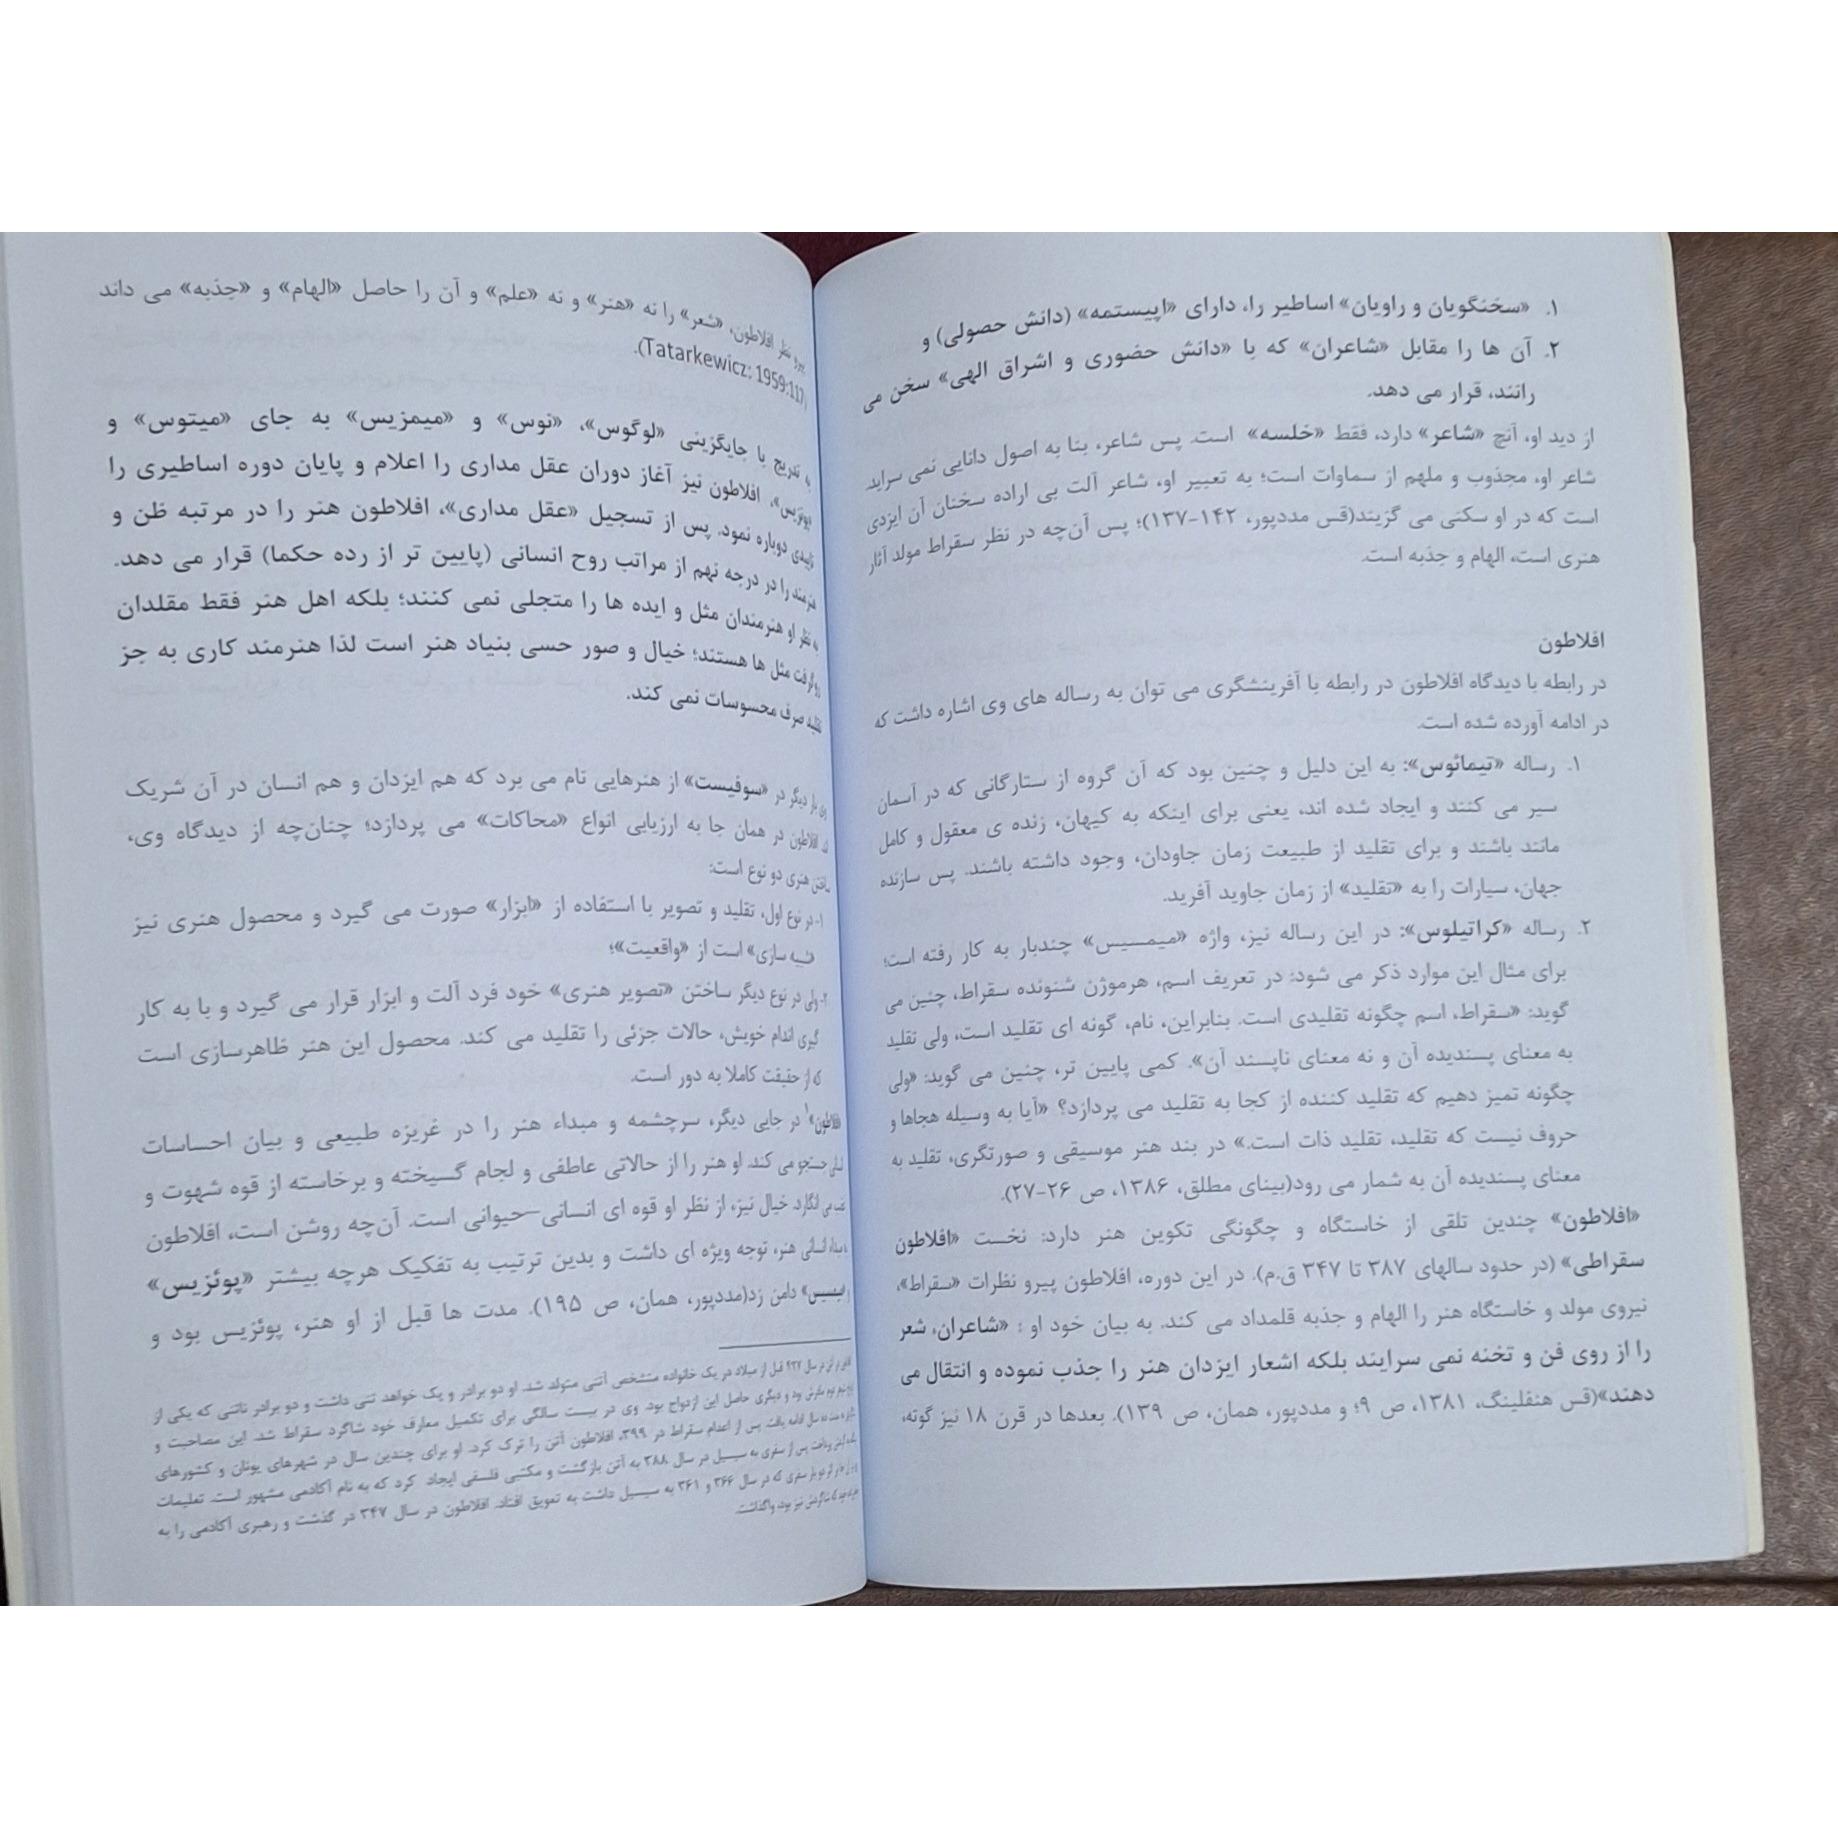 ۱. «سخنگویان و راویان» اساطیر را، دارای «اپیستمه» (دانش حصولی) و
۲. آن ها را مقابل «شاعران» که با «دانش حضوری و اشراق الهی» سخن می
رانند، قرار می دهد.
از دید او، آنچ «شاعر» دارد، فقط «خلسه» است. پس شاعر، بنا به اصول دانایی نمی سراید.
شاعر او، مجذوب و ملهم از سماوات است؛ به تعبیر او، شاعر آلت بی اراده سخنان آن ایزدی
است که در او سکنی می گزیند(قس مددپور، ۱۴۲-۱۳۷)؛ پس آن‌چه در نظر سقراط مولد آثار
هنری است، الهام و جذبه است.
افلاطون
در رابطه با دیدگاه افلاطون در رابطه با آفرینشگری می توان به رساله های وی اشاره داشت که
در ادامه آورده شده است.
۱. رساله «تیمائوس»: به این دلیل و چنین بود که آن گروه از ستارگانی که در آسمان
سیر می کنند و ایجاد شده اند، یعنی برای اینکه به کیهان، زنده ی معقول و کامل
مانند باشند و برای تقلید از طبیعت زمان جاودان، وجود داشته باشند. پس سازنده
جهان، سیارات را به «تقلید» از زمان جاوید آفرید.
۲. رساله «کراتیلوس»: در این رساله نیز، واژه «میمسیس» چندبار به کار رفته است؛
برای مثال این موارد ذکر می شود: در تعریف اسم، هرموژن شنونده سقراط، چنین می
گوید: «سقراط، اسم چگونه تقلیدی است. بنابراین، نام، گونه ای تقلید است، ولی تقلید
به معنای پسندیده آن و نه معنای ناپسند آن». کمی پایین تر، چنین می گوید: «ولی
چگونه تمیز دهیم که تقلید کننده از کجا به تقلید می پردازد؟ «آیا به وسیله هجاها و
حروف نیست که تقلید، تقلید ذات است.» در بند هنر موسیقی و صورتگری، تقلید به
معنای پسندیده آن به شمار می رود(بینای مطلق، ۱۳۸۶، ص ۲۶-۲۷).
«افلاطون» چندین تلقی از خاستگاه و چگونگی تکوین هنر دارد: نخست «افلاطون
سقراطی» (در حدود سالهای ۳۸۷ تا ۳۴۷ ق.م). در این دوره، افلاطون پیرو نظرات «سقراط»،
نیروی مولد و خاستگاه هنر را الهام و جذبه قلمداد می کند. به بیان خود او : «شاعران، شعر
را از روی فن و تخنه نمی سرایند بلکه اشعار ایزدان هنر را جذب نموده و انتقال می
دهند»(قس هنفلینگ، ۱۳۸۱، ص ۹؛ و مددپور، همان، ص ۱۳۹). بعدها در قرن ۱۸ نیز گوته،
پیرو نظر افلاطون، «شعر» را نه «هنر» و نه «علم» و آن را حاصل «الهام» و «جذبه» می داند
(Tatarkewicz: 1959:117).
به تدریج با جایگزینی «لوگوس»، «نوس» و «میمزیس» به جای «میتوس» و
«پوئزیس»، افلاطون نیز آغاز دوران عقل مداری را اعلام و پایان دوره اساطیری را
تاییدی دوباره نمود. پس از تسجیل «عقل مداری»، افلاطون هنر را در مرتبه ظن و
هنرمند را در درجه نهم از مراتب روح انسانی (پایین تر از رده حکما) قرار می دهد.
به نظر او هنرمندان مثل و ایده ها را متجلی نمی کنند؛ بلکه اهل هنر فقط مقلدان
روگرفت مثل ها هستند؛ خیال و صور حسی بنیاد هنر است لذا هنرمند کاری به جز
تقلید صرف محسوسات نمی کند.
وی بار دیگر در «سوفیست» از هنرهایی نام می برد که هم ایزدان و هم انسان در آن شریک
افلاطون در همان جا به ارزیابی انواع «محاکات» می پردازد؛ چنان‌چه از دیدگاه وی،
ساختن هنری دو نوع است:
۱- در نوع اول، تقلید و تصویر با استفاده از «ابزار» صورت می گیرد و محصول هنری نیز
«شبیه سازی» است از «واقعیت»؛
۲- ولی در نوع دیگر ساختن «تصویر هنری» خود فرد آلت و ابزار قرار می گیرد و با به کار
گیری اندام خویش، حالات جزئی را تقلید می کند. محصول این هنر ظاهرسازی است
که از حقیقت کاملا به دور است.
«افلاطون»۱ در جایی دیگر، سرچشمه و مبداء هنر را در غریزه طبیعی و بیان احساسات
جستجو می کند. او هنر را از حالاتی عاطفی و لجام گسیخته و برخاسته از قوه شهوت و
می انگارد. خیال نیز، از نظر او قوه ای انسانی–حیوانی است. آن‌چه روشن است، افلاطون
مبداء انسانی هنر، توجه ویژه ای داشت و بدین ترتیب به تفکیک هرچه بیشتر «پوئزیس»
و «میمسیس» دامن زد(مددپور، همان، ص ۱۹۵). مدت ها قبل از او هنر، پوئزیس بود و
در سال ۴۲۷ قبل از میلاد در یک خانواده متشخص آتنی متولد شد. او دو برادر و یک خواهد تنی داشت و دو برادر ناتنی که یکی از
بود و دیگری حاصل این ازدواج بود. وی در بیست سالگی برای تکمیل معارف خود شاگرد سقراط شد. این مصاحبت و
سال ادامه یافت. پس از اعدام سقراط در ۳۹۹، افلاطون آتن را ترک کرد. او برای چندین سال در شهرهای یونان و کشورهای
پرداخت پس از سفری به سیسیل در سال ۳۸۸ به آتن بازگشت و مکتبی فلسفی ایجاد کرد که به نام آکادمی مشهور است. تعلیمات
دو بار سفری که در سال ۳۶۶ و ۳۶۱ به سیسیل داشت به تعویق افتاد. افلاطون در سال ۳۴۷ در گذشت و رهبری آکادمی را به
که شاگردش نیز بود، واگذاشت.